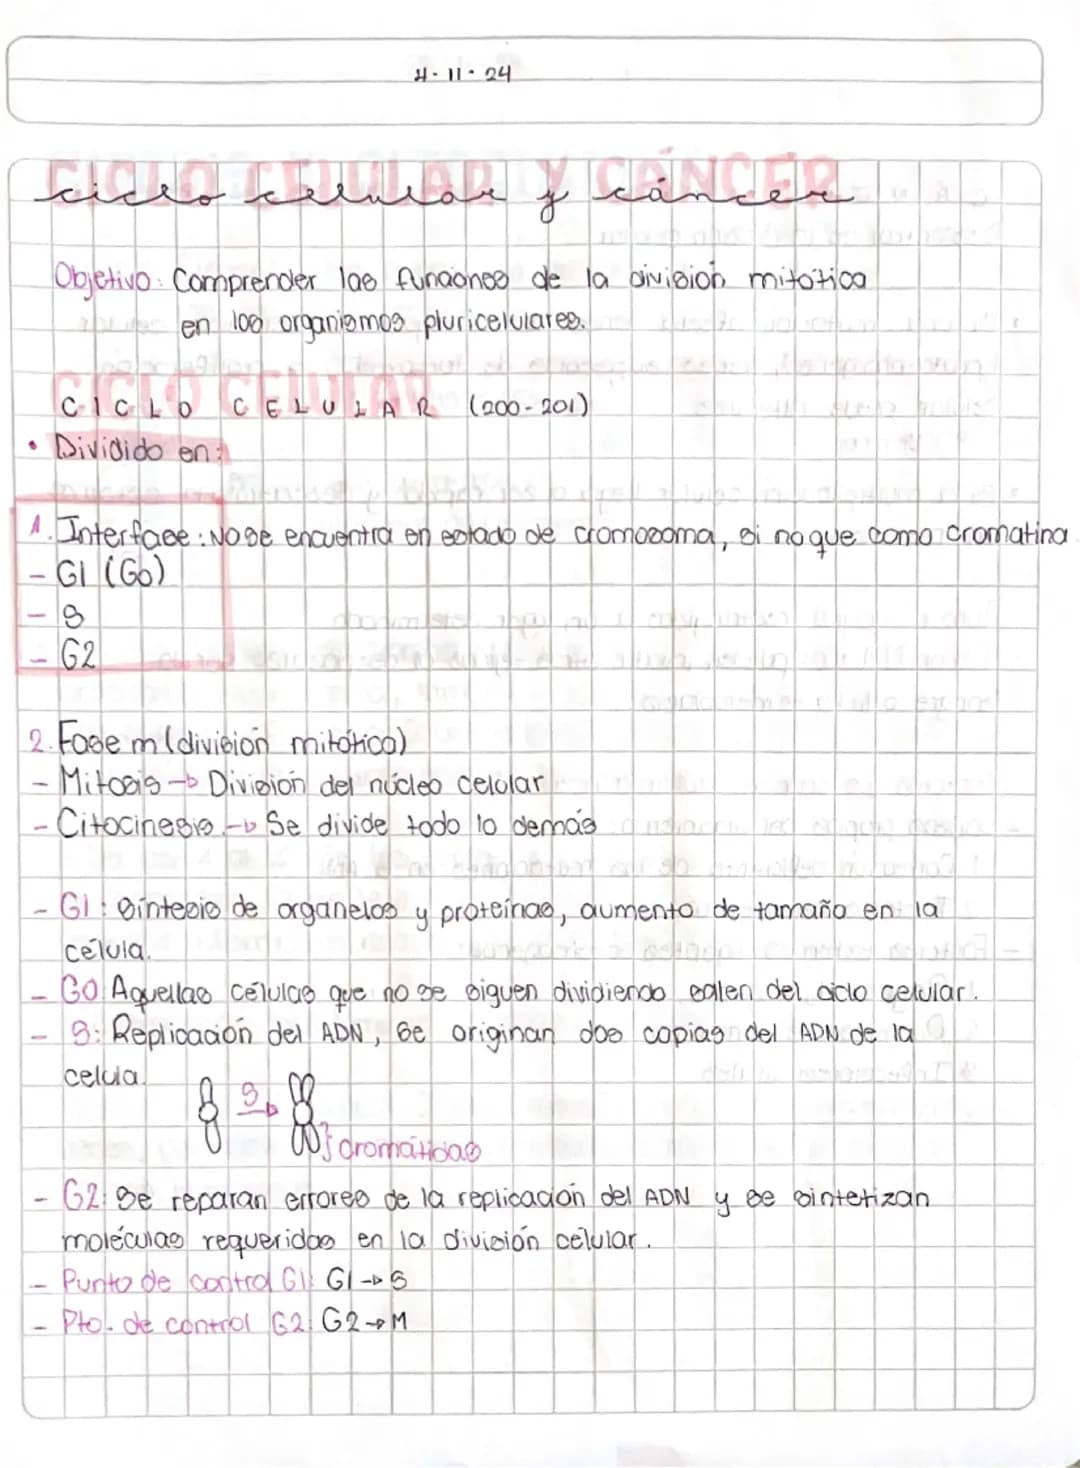 4-11-24
ciclo celular y cáncer
Objetivo: Comprender las funciones de la división mitótica
en los organismos pluricelulares.
CICLO CELULAR (200-201)
• Dividido en:
1. Interfase: No se encuentra en estado de cromosoma, si no que como cromatina
- G1 (G0)
- S
- G2
2. Fase m (división mitótica)
- Mitosis → División del núcleo celular
- Citocinesis → Se divide todo lo demás
- G1: síntesis de organelos y proteínas, aumento de tamaño en la
célula.
- G0: Aquellas células que no se siguen dividiendo salen del ciclo celular.
- S: Replicación del ADN, se originan dos copias del ADN de la
celula.
S →
} cromátidas
- G2: Se reparan errores de la replicación del ADN y se sintetizan
moléculas requeridas en la división célular.
- Punto de control G1: G1 → S
- Pto. de control G2: G2 → M